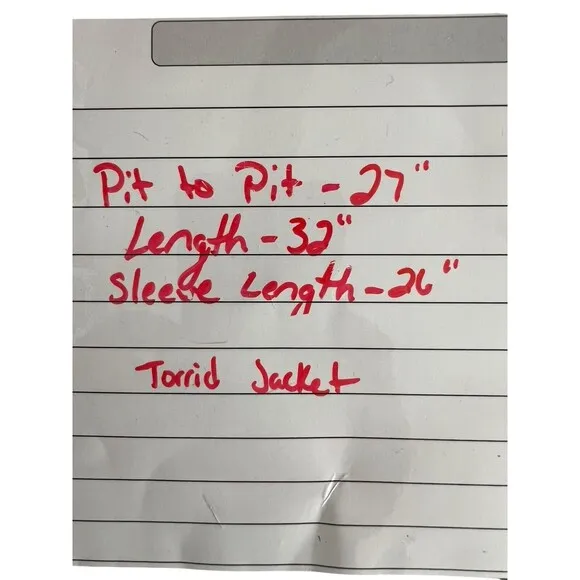 Pit to Pit - 27"
Length - 32"
Sleeve Length - 26"
Torrid Jacket